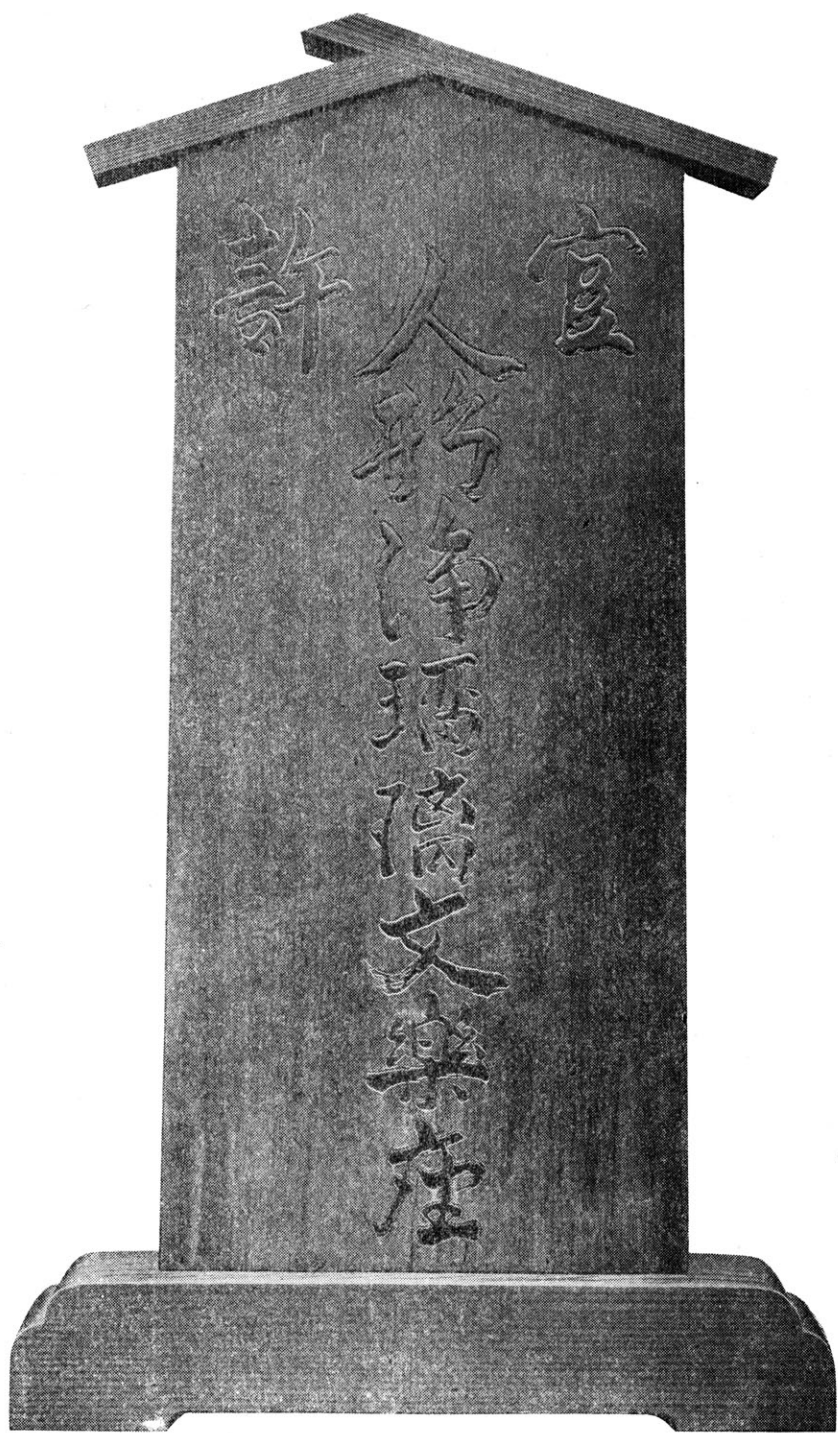 官許
人形浄瑠璃文楽座